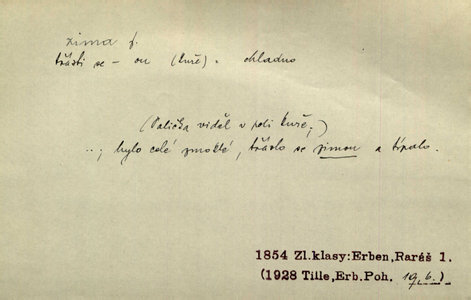 zima f.
třásti se – ou (kuře). chladno
(Palička viděl v poli kuře;)
..; bylo celé zmoklé, třáslo se zimou a típalo.
1854 Zl.klasy:Erben,Raráš 1.
(1928 Tille,Erb.Poh. 196.)